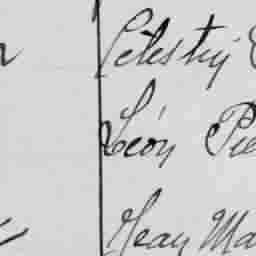 Célestin
Léon Pie
Jean Ma